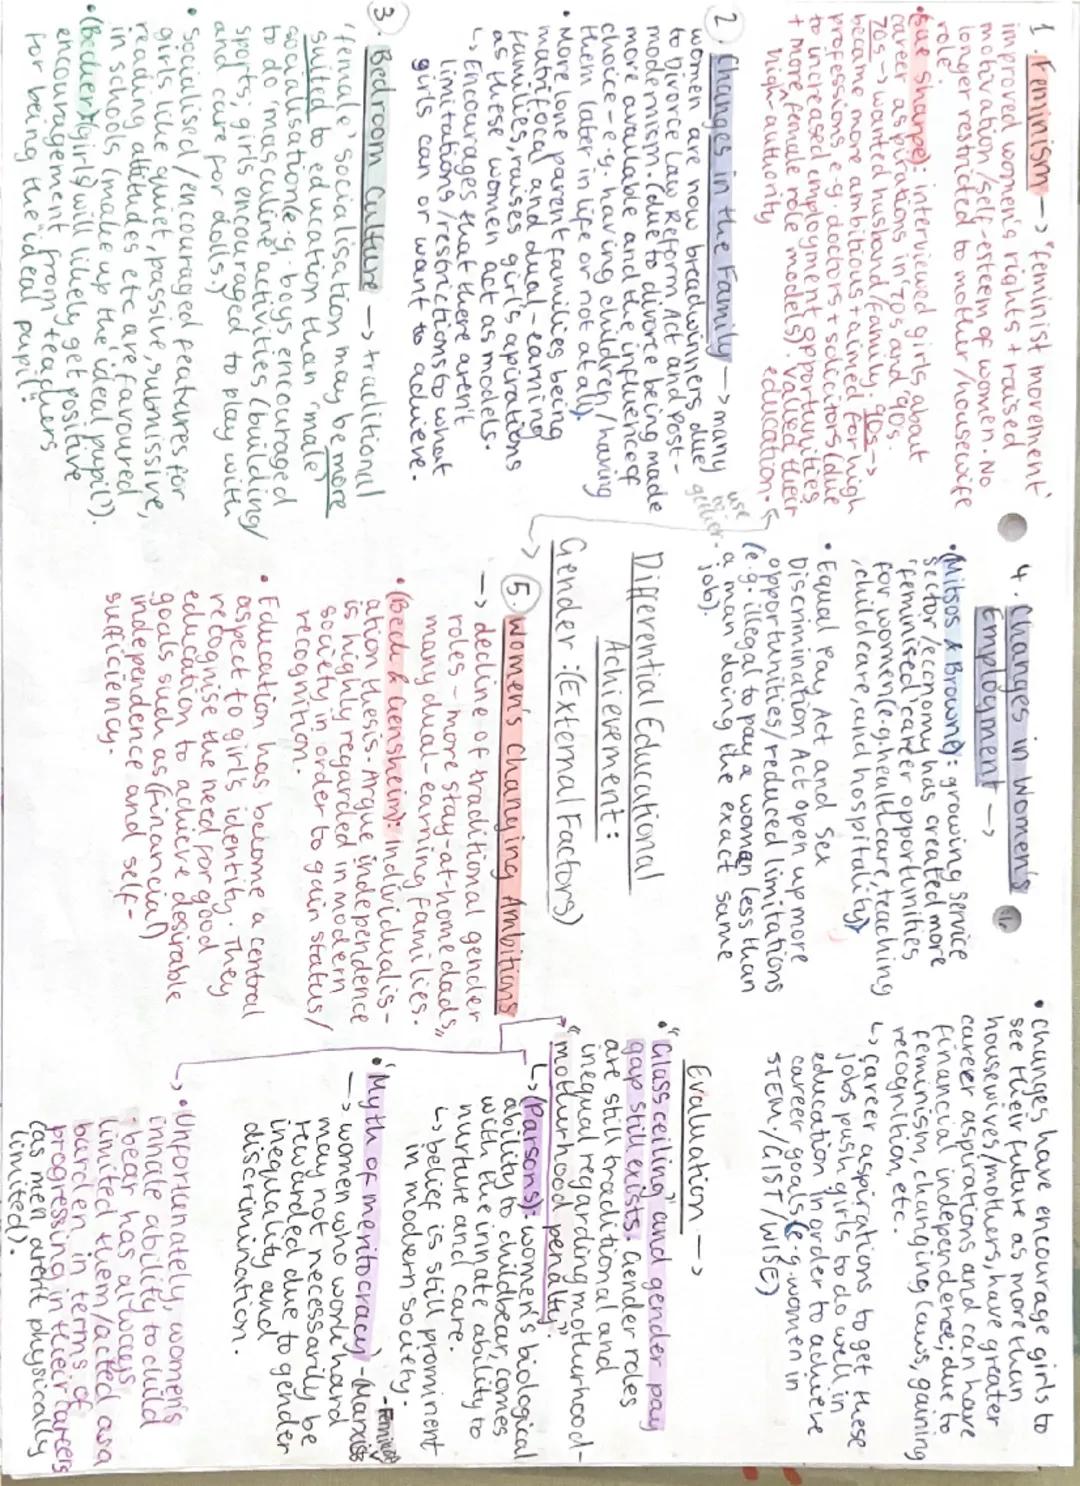 1. Feminism -> 'feminist movement'
improved women's rights + raised
motivation/self-esteem of women. No
longer restricted to mother/housewife
role.
• (Sue Sharpe): interviewed girls about
career aspirations in '70s and '90s.
70s -> wanted husband/family. 90s ->
became more ambitious + aimed for high
professions e.g. doctors + solicitors (due
to increased employment opportunities
+ more female role models). Valued their
high authority education.
2. Changes in the Family -> many
women are now breadwinners due
to Divorce Law Reform Act and Post-
modernism. (due to divorce being made
more available and the influence of
choice - e.g. having children/having
them later in life or not at all).
• More lone parent families being
matrifocal and dual-earning
families, raises girl's apirations
as these women act as models.
↳ Encourages that there aren't
limitations/restrictions to what
girls can or want to achieve.
3. Bedroom Culture -> traditional
'female' socialisation may be more
suited to education than 'male'
socialisation (e.g. boys encouraged
to do 'masculine' activities (building/
sports; girls encouraged to play with
and care for dolls.)
• socialised/encouraged features for
girls like quiet, passive, submissive,
reading attitudes etc are favoured
in schools (make up the ideal pupil').
• (Becker) (girls) will likely get positive
encouragement from teachers
for being the "ideal pupil"
4. Changes in Women's
Employment ->
• (Mitsos & Browne): growing service
sector/economy has created more
'feminised' career opportunities
for women (e.g. healthcare, teaching
, childcare, and hospitality)
• Equal Pay Act and Sex
Discrimination Act open up more
opportunities/reduced limitations
(e.g. illegal to pay a woman less than
a man doing the exact same
job).
use
Differential Educational
Achievement:
Gender: (External Factors)
5. Women's Changing Ambitions
-> decline of traditional gender
roles - more stay-at-home dads,
many dual-earning families.
• (Beck & Gernsheim): Individualis-
ation thesis - Argue independence
is highly regarded in modern
society in order to gain status/
recognition.
• Education has become a central
aspect to girl's identity. They
recognise the need for good
education to achieve desirable
goals such as (financial)
independence and self-
sufficiency.
• Changes have encourage girls to
see their future as more than
housewives/mothers, have greater
career aspirations and can have
financial independence; due to
feminism, changing laws, gaining
recognition, etc.
↳ Career aspirations to get these
jobs push girls to do well in
education in order to achieve
career goals (e.g. women in
STEM./GIST/WISE)
Evaluation ->
• "Glass ceiling" and gender pay
gap still exists. Gender roles
are still traditional and
inequal regarding motherhood-
"motherhood penalty".
↳ (Parsons): women's biological
ability to childbear, comes
with the innate ability to
nurture and care.
↳ belief is still prominent
in modern society.
• 'Myth of meritocracy' - (Marxists
- Feminist
-> women who work hard
may not necessarily be
rewarded due to gender
inequality and
discrimination.
↳ • Unfortunately, women's
innate ability to child
bear has always
limited them/acted as a
burden in terms of
progressing in their careers
(as men aren't physically
limited).